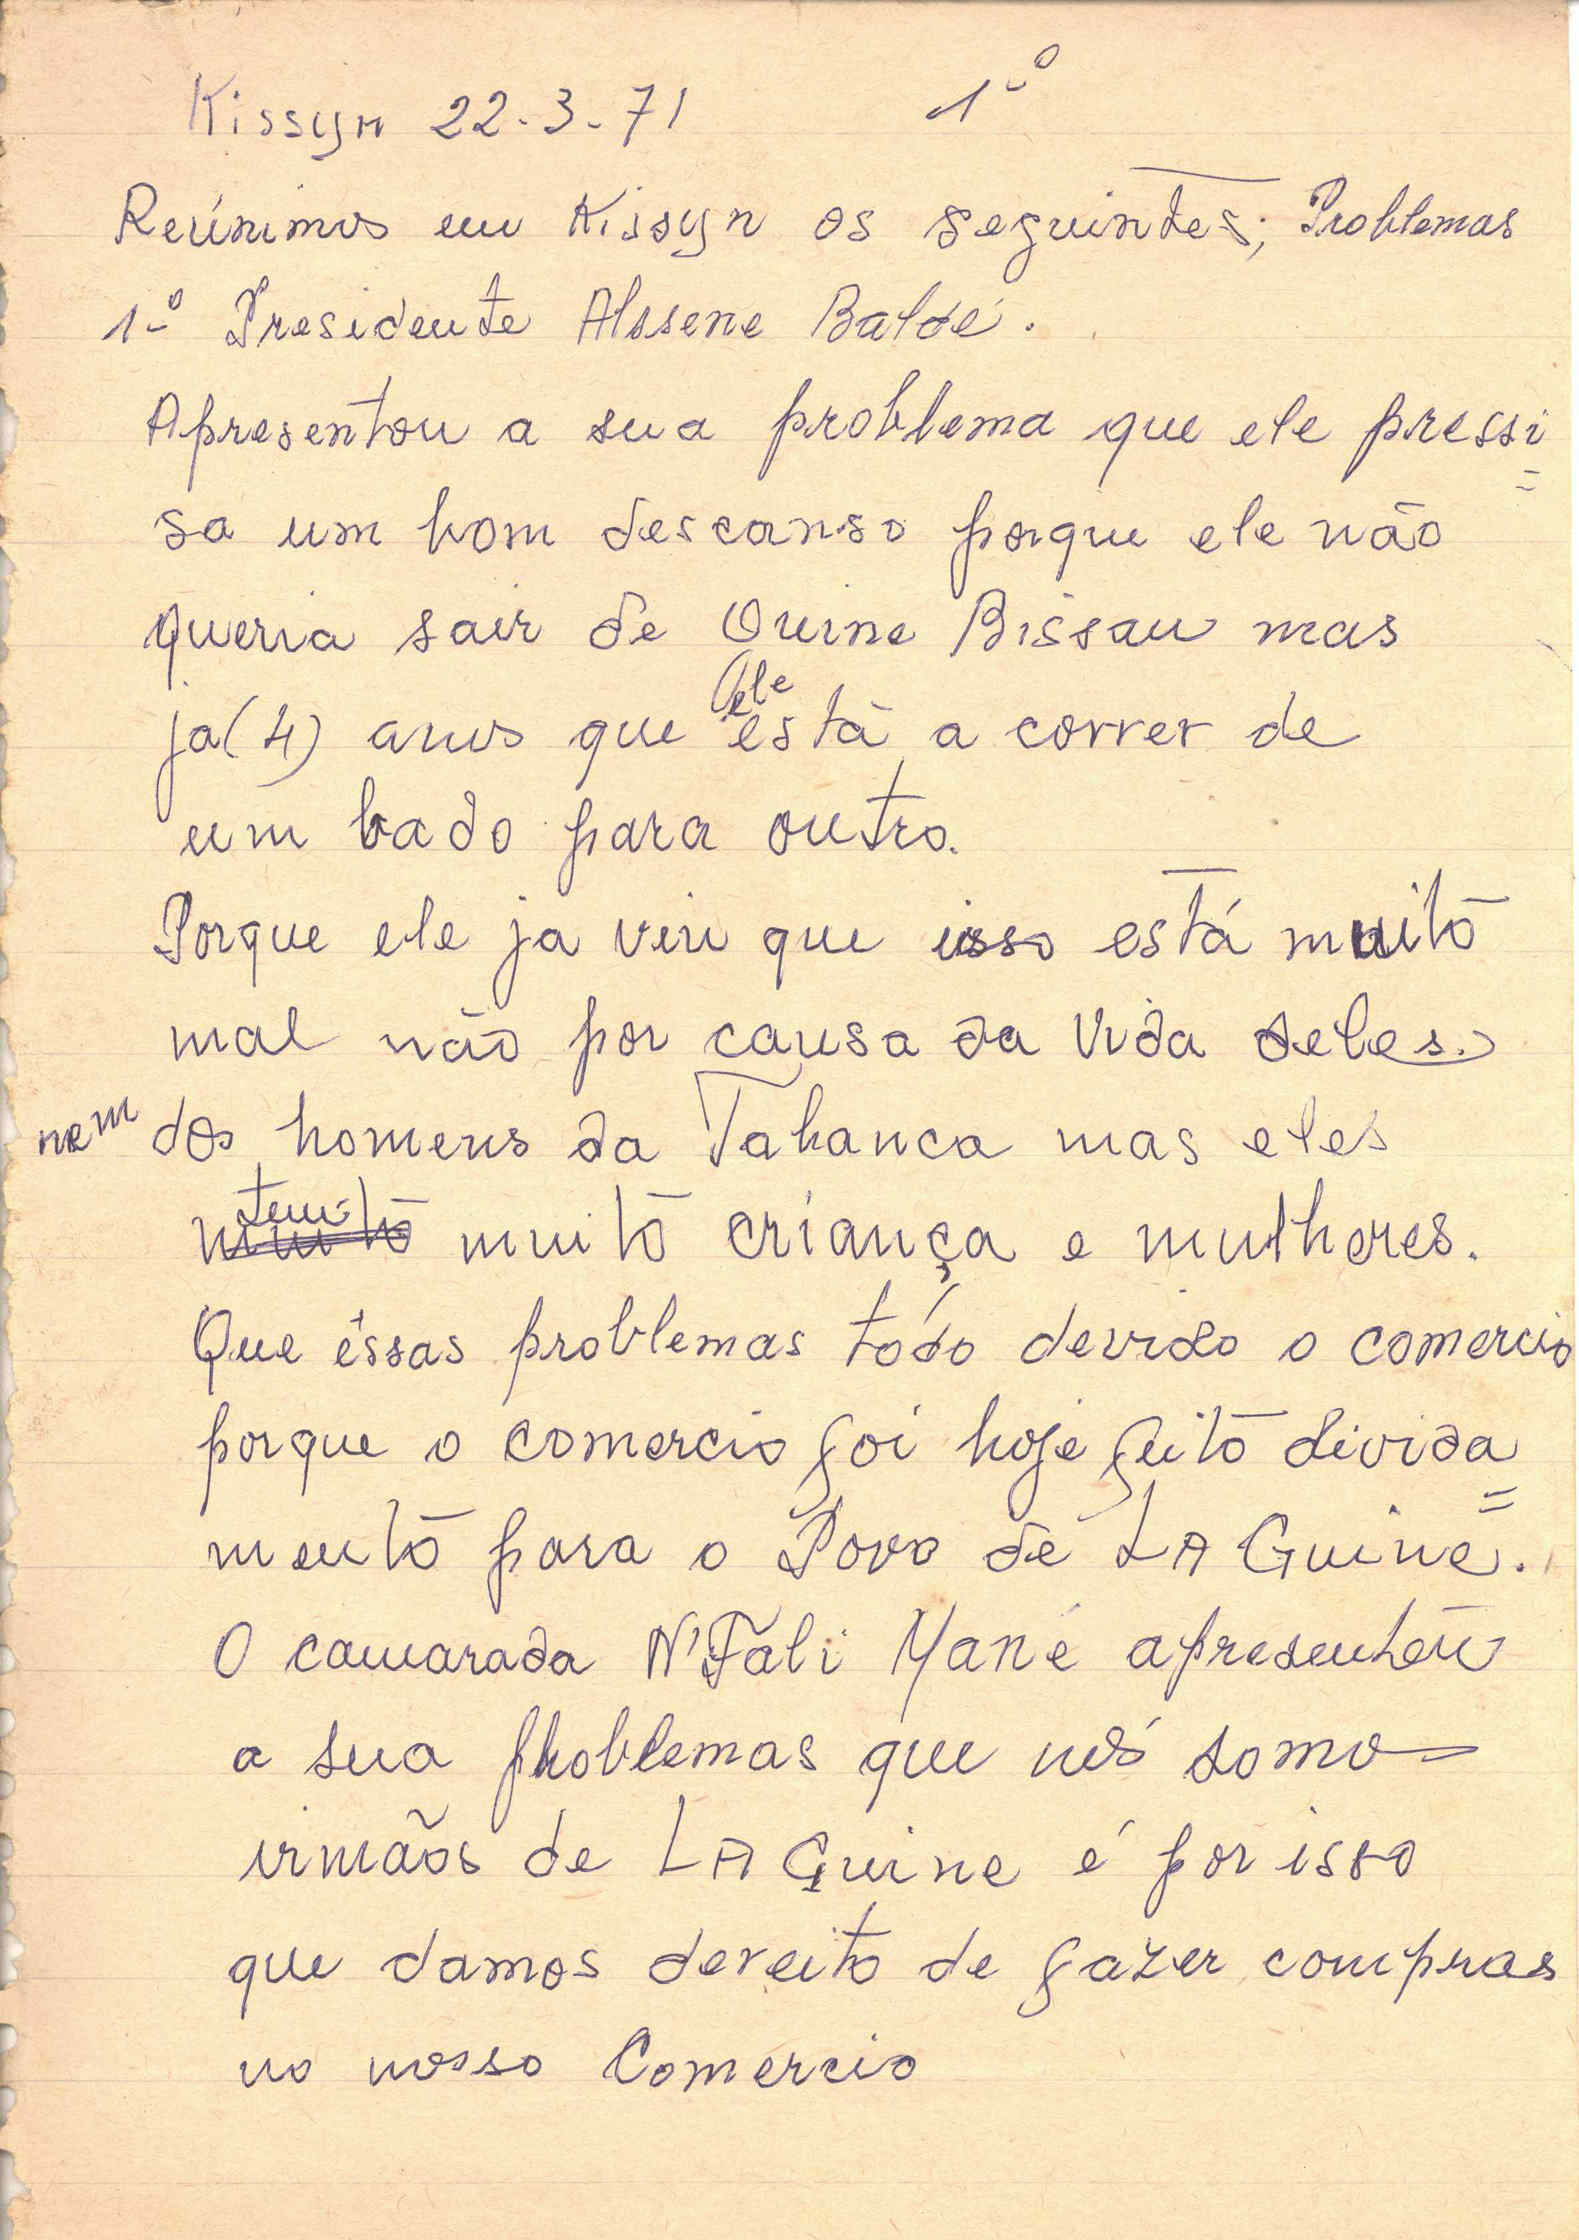 Kissyn 22-3-71 1-º
Reúnimos em Kissyn os seguintes; Problemas
1-º Presidente Alssene Baldé.
Apresentou a sua problema que ele pressi=
sa um bom descanso porque ele não
queria sair de Guine Bissau mas
ja (4) anos que ele está a correr de
um lado para outro.
Porque ele ja viu que isso está muito
mal não por causa da vida deles.
nem dos homens da Tabanca mas eles
muito tem muito criança e mulheres.
Que éssas problemas tódo devido o comercio
porque o comercio foi hoje feito divida=
mento para o Povo de LA Guine.
O camarada N'Fali Mané apresentou
a sua problemas que nós somo
irmãos de LA Guine é por isso
que damos dereito de fazer compras
no nosso Comercio